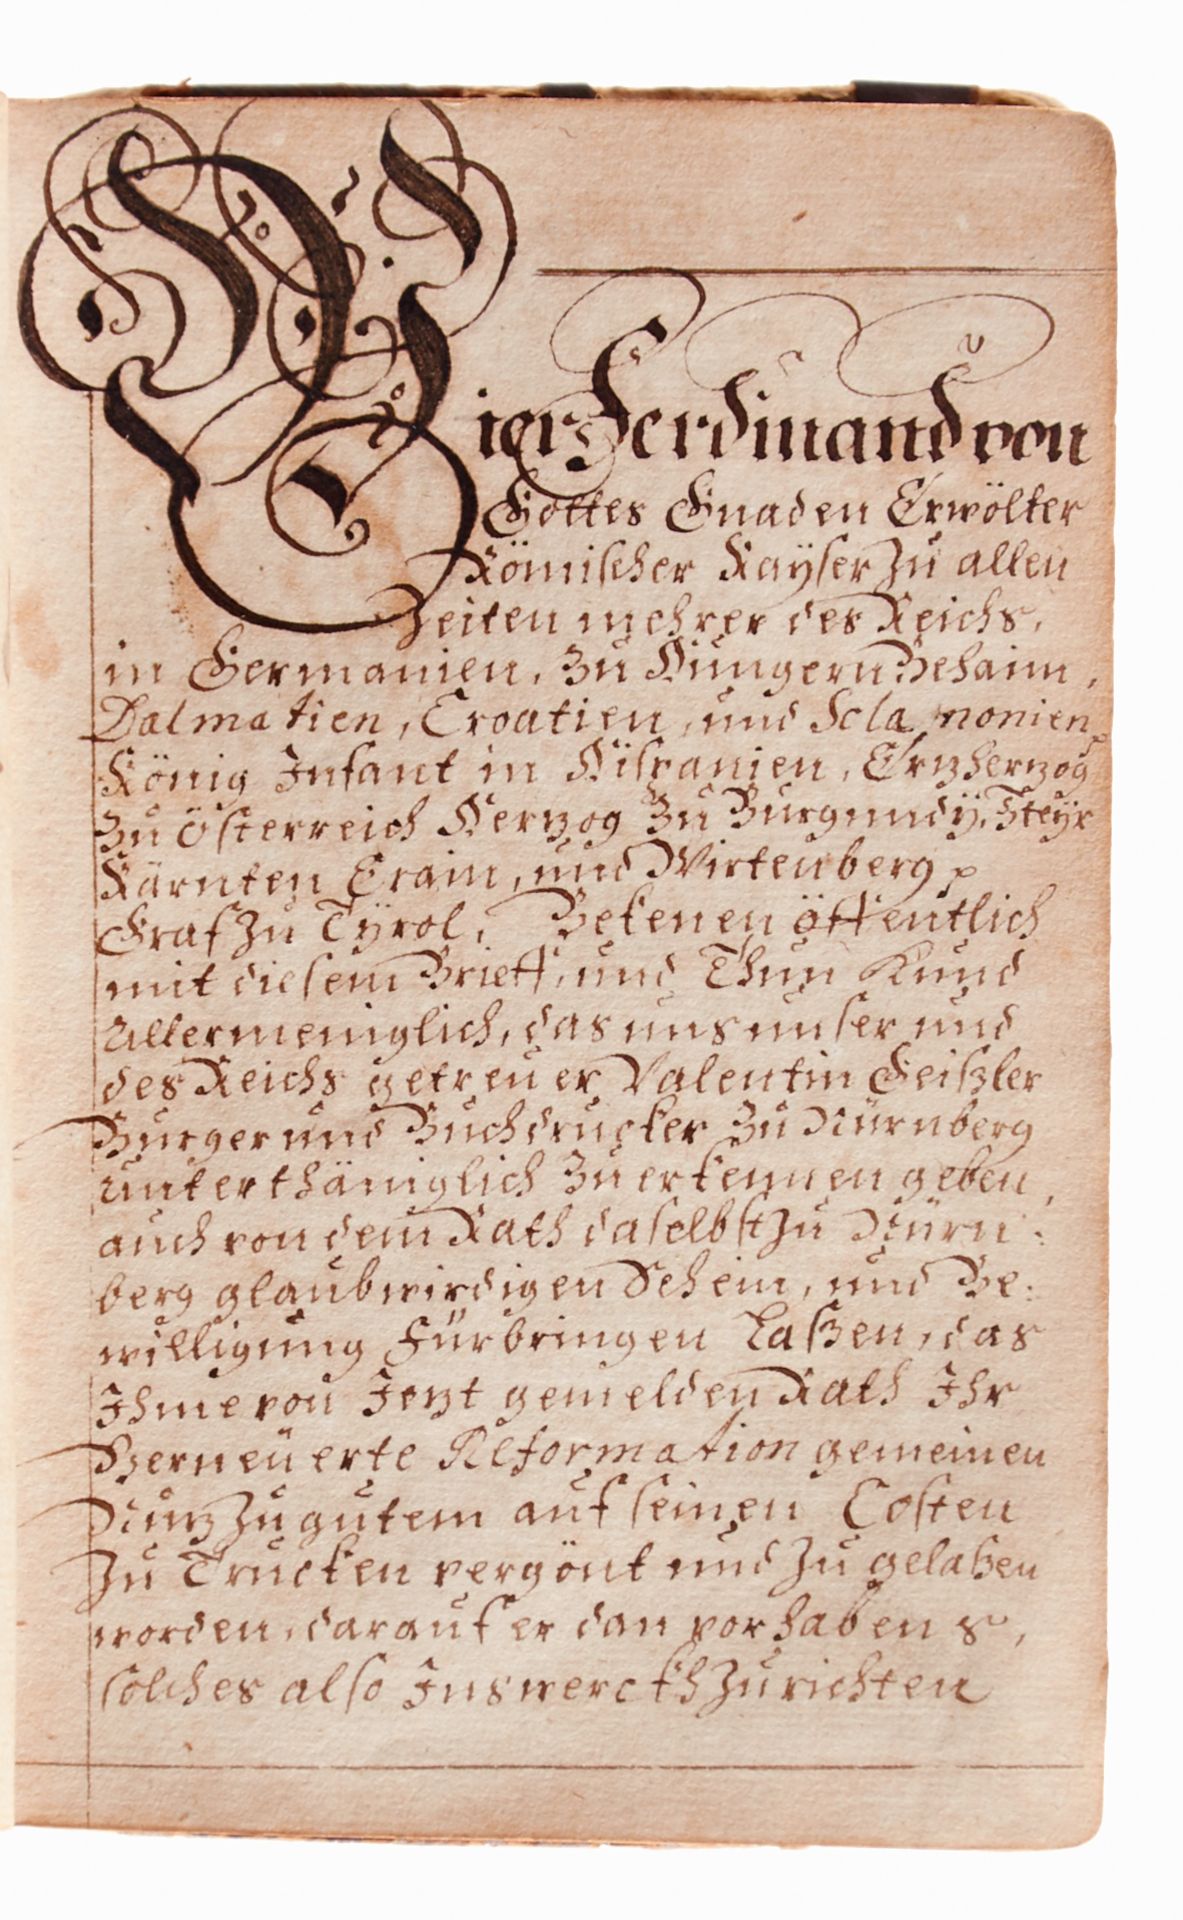 Wier Ferdinand von
Gottes Gnaden Erwölter
Römischer Kayser Zu allen
Zeiten mehrer des Reichs,
in Germanien, Zu Hungern Behaim,
Dalmatien, Croatien, und Sclavonien
König Infant in Hispanien, Erzherzog
Zu Österreich Herzog Zu Burgundÿ, Steÿr
Kärnten Crain, und Wirtenberg
Graf Zu Tÿrol, Bekenen öffentlich
mit diesem Brieff, und Thun Kund
Allermeniglich, das uns unser und
des Reichs getreuer Valentin Geißler
Burger und Buchdrucker Zu Nürnberg
Unterthäniglich Zu erkennen geben,
auch von dem Rath daselbst Zu Nürn:
berg glaubwirdigen Schein, und Be:
willigung Fürbringen Laßen, das
Ihme von Jetzt gemelden Rath Ihr
Verneüerte Reformation gemeinen
Nutz Zu gutem auf seinen Costen
Zu Trucken vergönt und Zu gelaßen
worden, darauf er dan vorhabens,
solches also Ins werckh Zu richten